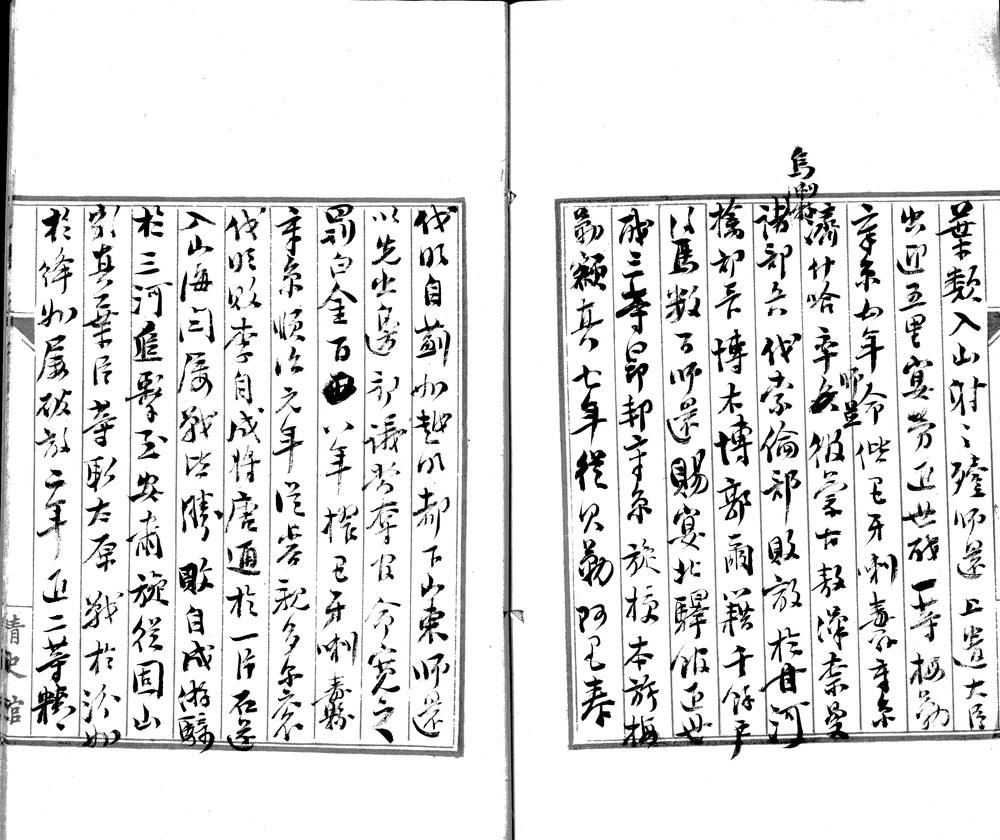 葉類入山射之殪師還上遣大臣
出迎五里宴勞進世職一等梅勒
章京五年命偕巴牙喇纛章京
濟什哈率師並徵蒙古敖漢奈曼
烏喇特諸部兵伐索倫部敗敵於甘河
擒部長博木博郭爾籍千餘戶
及馬數百師還賜宴北驛館進世
職三等昂邦章京旋授本旗梅
勒額真七年從貝勒阿巴泰
伐明自薊州趨明都下山東師還
以先出邊部議當奪官命寬之
罰白金百八年擢巴牙喇纛
章京順治元年從睿親多爾袞
伐明敗李自成將唐通於一片石遂
入山海關屢戰皆勝敗自成游騎
於三河追擊至安肅旋從固山
額真葉臣等取太原戰於汾州
於絳州屢破敵二年進二等精
清史館